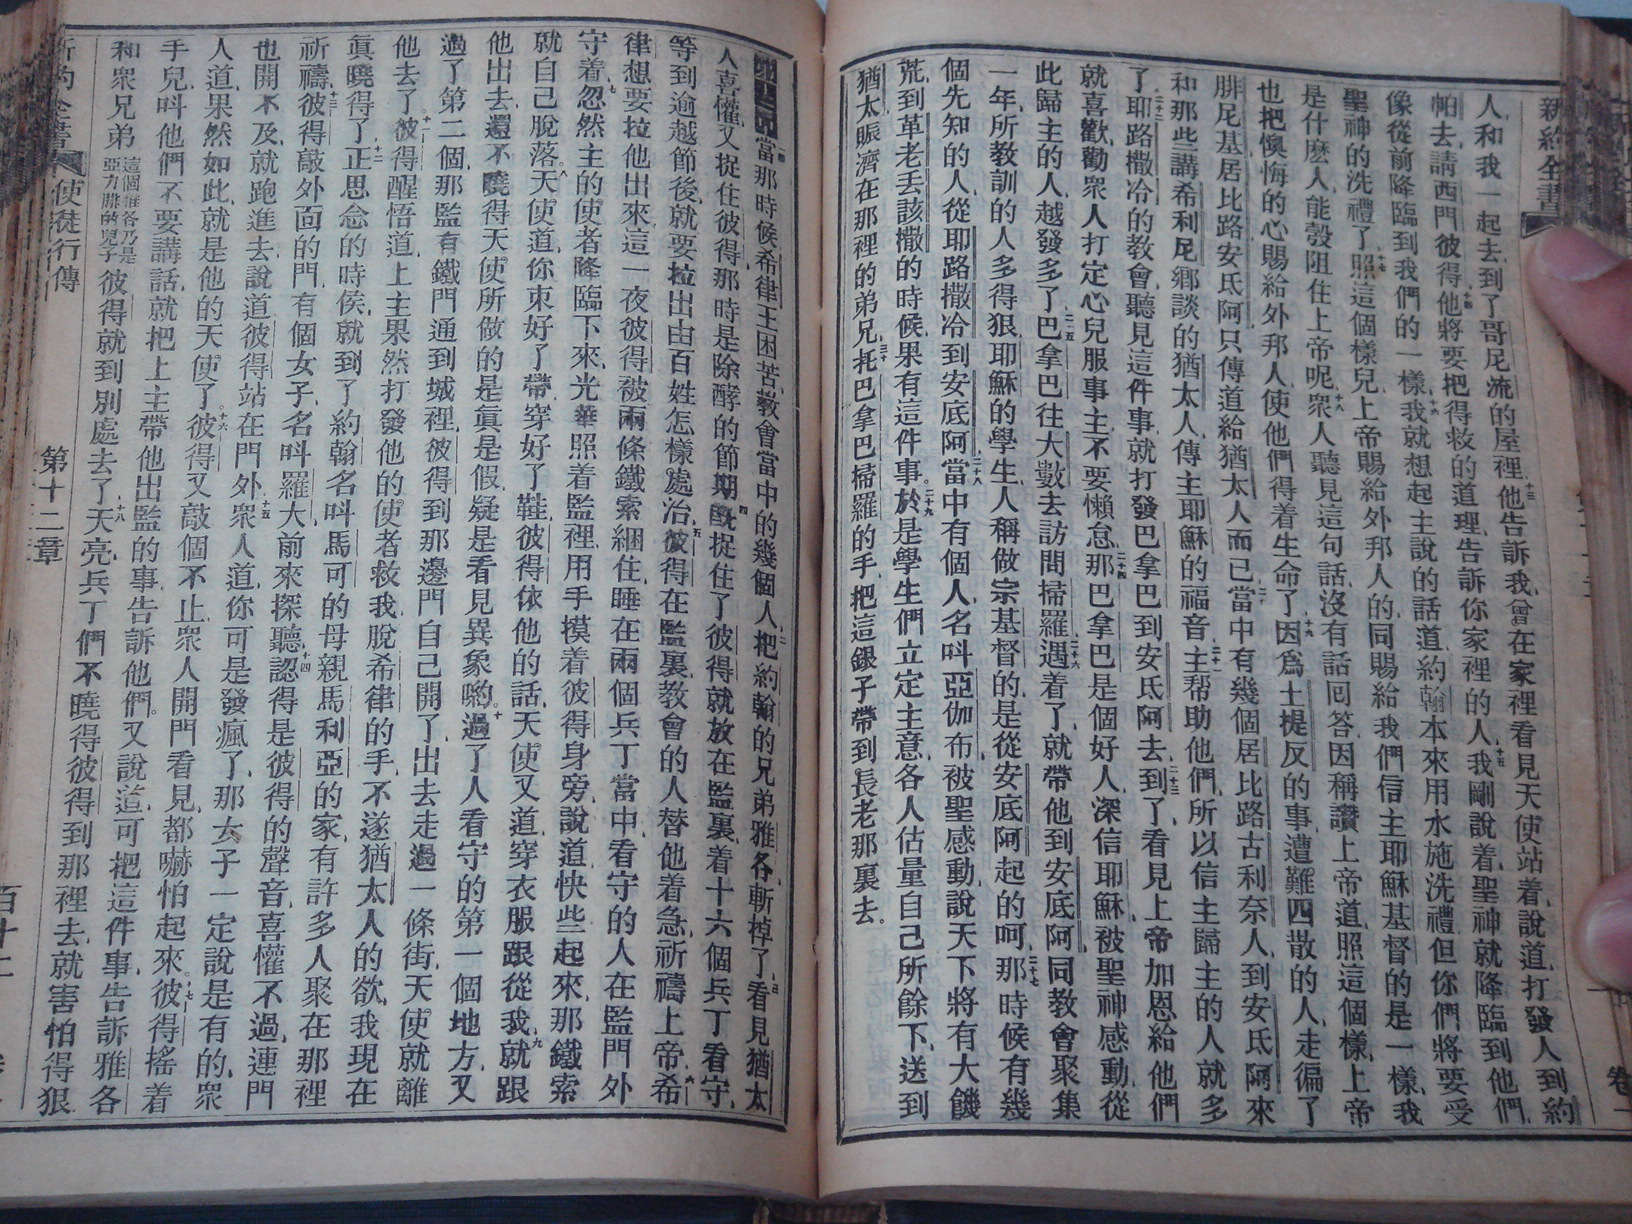 新約全書
卷一
人和我一起去到了哥尼流的屋裡他告訴我曾在家裡看見天使站着說道打發人到約
帕去請西門彼得他將要把得救的道理告訴你家裡的人我剛說着聖神就降臨到他們
像從前降臨到我們的一樣我就想起主說的話道約翰本來用水施洗禮但你們將要受
聖神的洗禮了照這個樣兒上帝賜給外邦人的同賜給我們信主耶穌基督的是一樣我
是什麼人能彀阻住上帝呢衆人聽見這句話沒有話囘答因稱讚上帝道照這個樣上帝
也把懊悔的心賜給外邦人使他們得着生命了因爲士提反的事遭難四散的人走徧了
腓尼基居比路安氐阿只傳道給猶太人而已當中有幾個居比路古利奈人到安氐阿來
和那些講希利尼鄉談的猶太人傳主耶穌的福音主帮助他們所以信主歸主的人就多
了耶路撒冷的教會聽見這件事就打發巴拿巴到安氐阿去到了看見上帝加恩給他們
就喜歡勸衆人打定心兒服事主不要懶怠那巴拿巴是個好人深信耶穌被聖神感動從
此歸主的人越發多了巴拿巴往大數去訪問掃羅遇着了就帶他到安底阿同教會聚集
一年所教訓的人多得狠耶穌的學生人稱做宗基督的是從安底阿起的呵那時候有幾
個先知的人從耶路撒冷到安底阿當中有個人名呌亞伽布被聖感動說天下將有大饑
荒到革老丟該撒的時候果有這件事於是學生們立定主意各人估量自己所餘下送到
猶太賑濟在那裡的弟兄托巴拿巴掃羅的手把這銀子帶到長老那裏去
當那時候希律王困苦教會當中的幾個人把約翰的兄弟雅各斬掉了看見猶太
人喜懽又捉住彼得那時是除酵的節期旣捉住了彼得就放在監裏着十六個兵丁看守
等到逾越節後就要拉出由百姓怎樣處治彼得在監裏教會的人替他着急祈禱上帝希
律想要拉他出來這一夜彼得被兩條鐵索綑住睡在兩個兵丁當中看守的人在監門外
守着忽然主的使者降臨下來光華照着監裡用手摸着彼得身旁說道快些起來那鐵索
就自己脫落天使道你束好了帶穿好了鞋彼得依他的話天使又道穿衣服跟從我就跟
他出去還不曉得天使所做的是眞是假疑是看見異象喲過了人看守的第一個地方又
過了第二個那監有鐵門通到城裡彼得到那邊門自己開了出去走過一條街天使就離
他去了彼得醒悟道上主果然打發他的使者救我脫希律的手不遂猶太人的欲我現在
眞曉得了正思念的時侯就到了約翰名呌馬可的母親馬利亞的家有許多人聚在那裡
祈禱彼得敲外面的門有個女子名呌羅大前來探聽認得是彼得的聲音喜懽不過連門
也開不及就跑進去說道彼得站在門外衆人道你可是發瘋了那女子一定說是有的衆
人道果然如此就是他的天使了彼得又敲個不止衆人開門看見都嚇怕起來彼得搖着
手兒呌他們不要講話就把上主帶他出監的事告訴他們又說道可把這件事告訴雅各
和衆兄弟這個雅各乃是亞力腓的兒子彼得就到別處去了天亮兵丁們不曉得彼得到那裡去就害怕得狠
新約全書 使徒行傳 第十二章 百十二